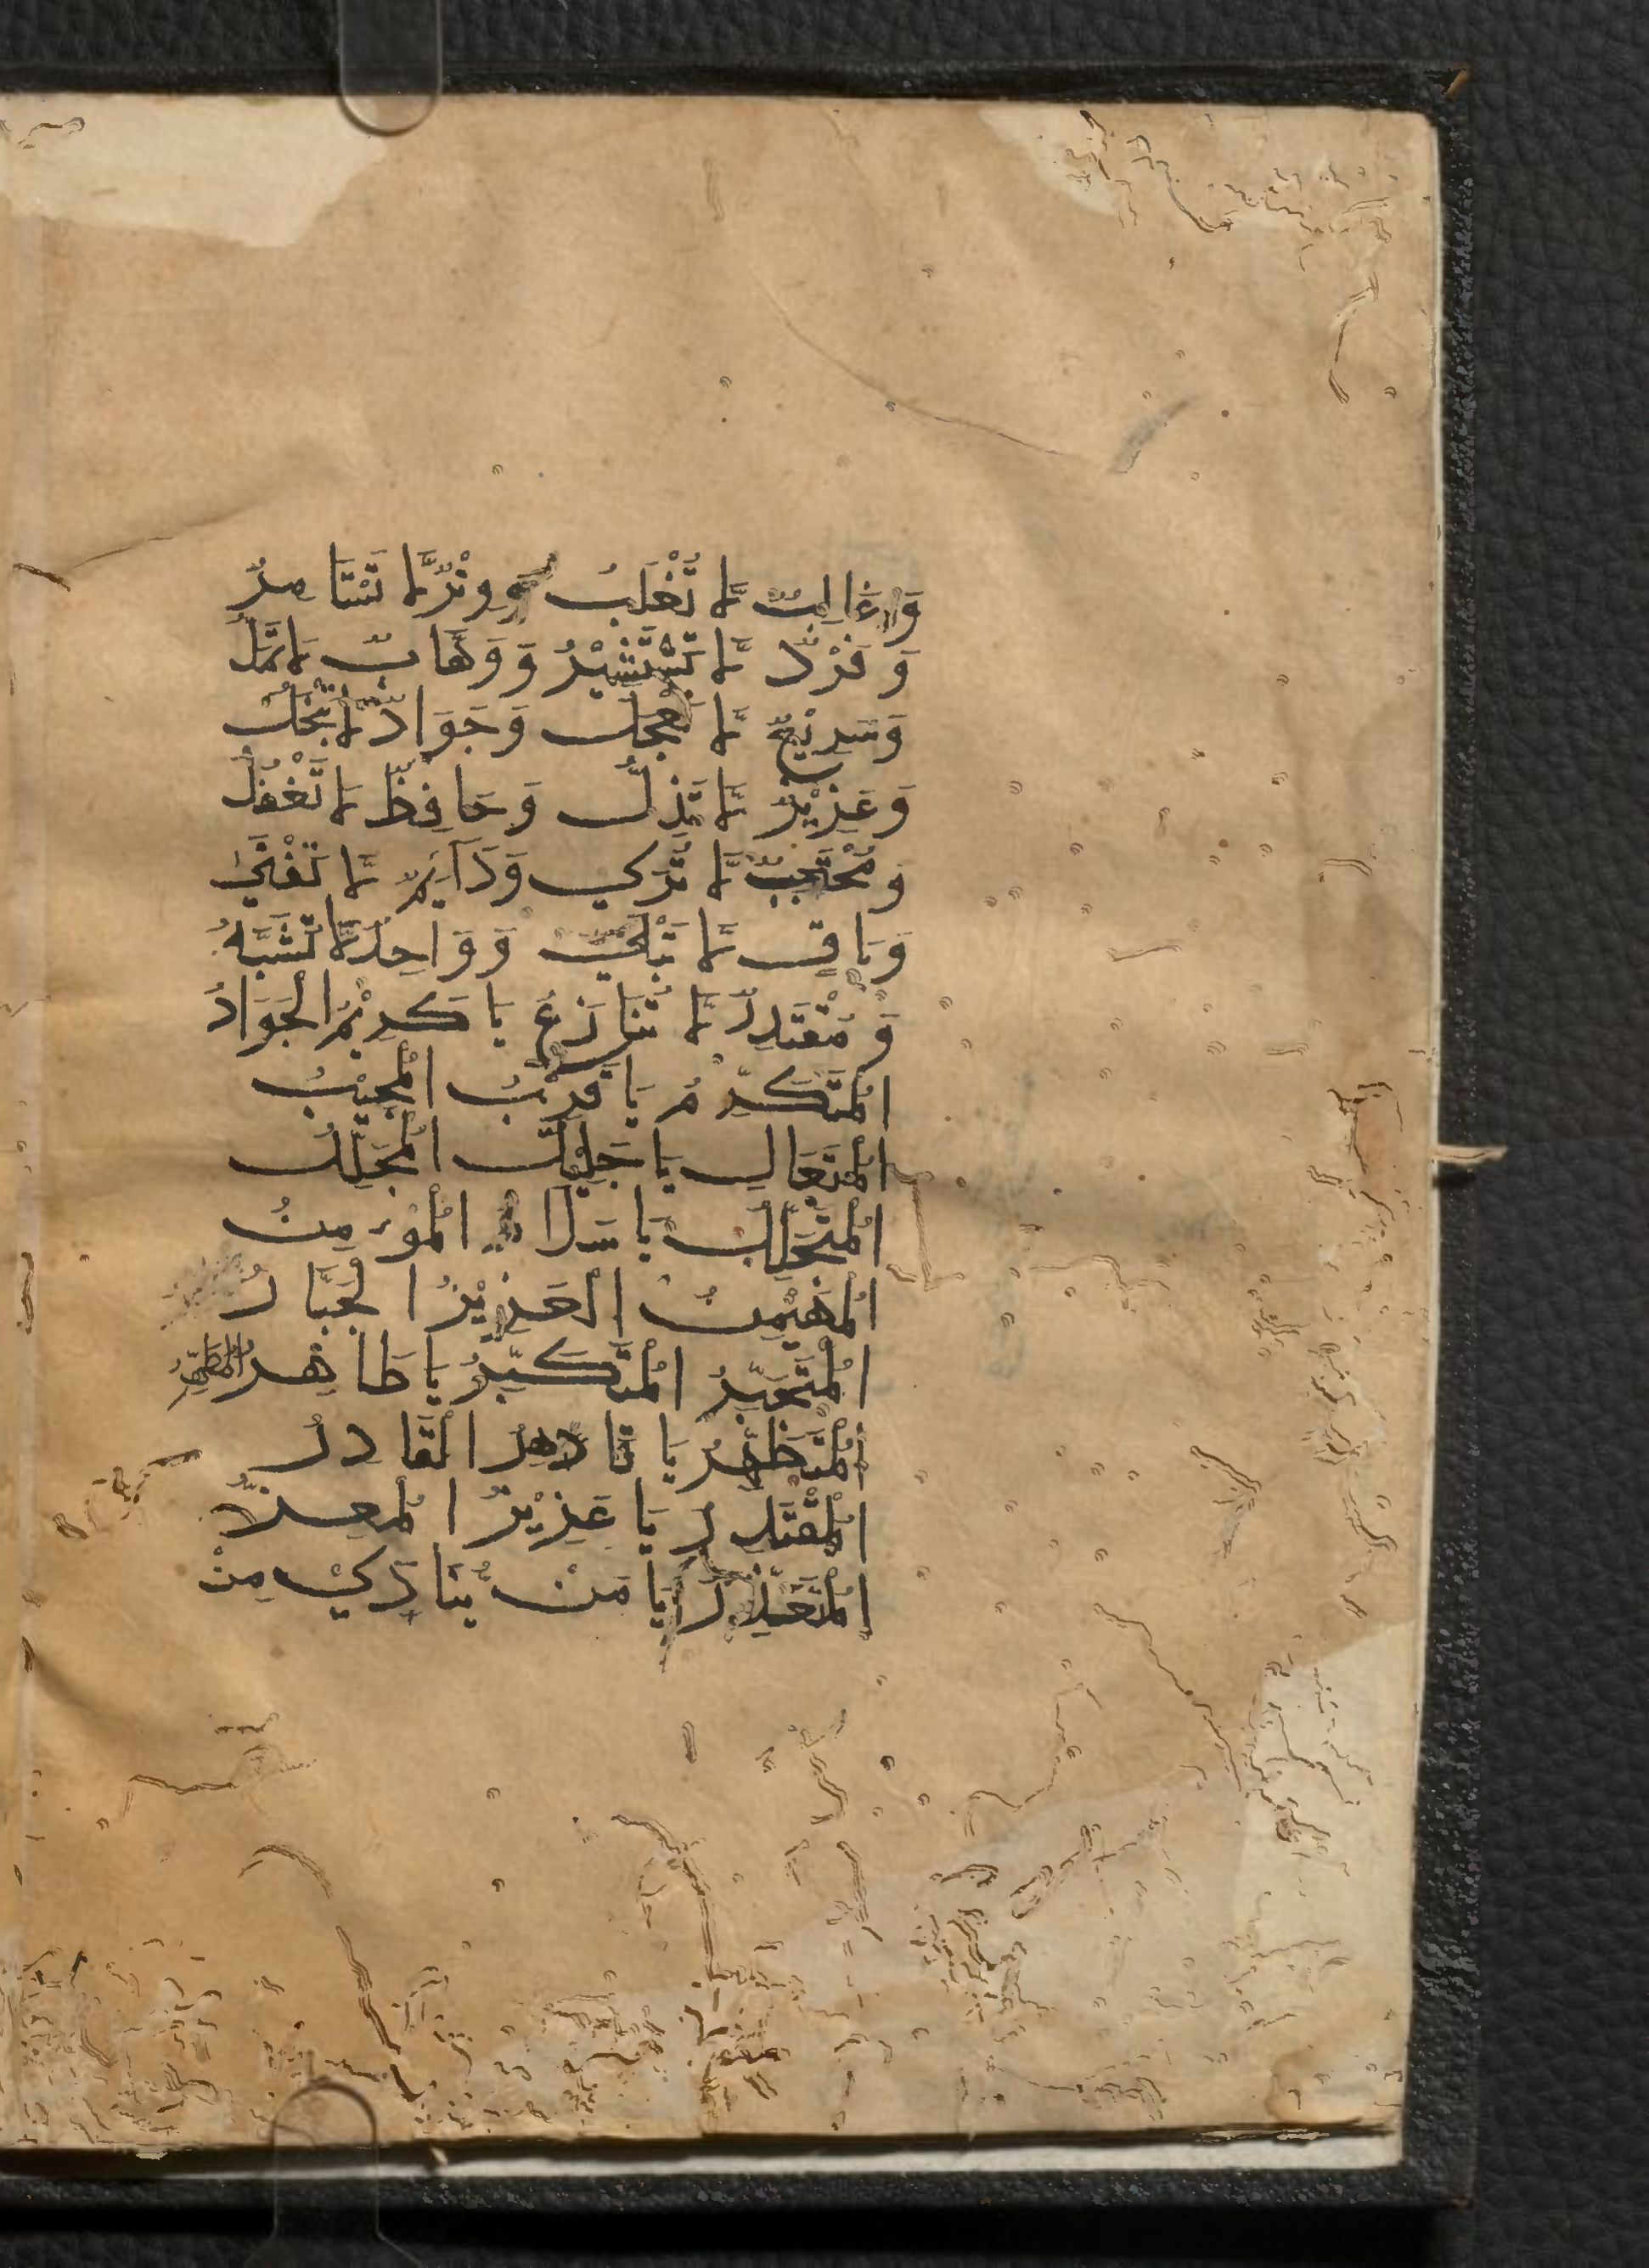 وَغَالِبٌ لَّا تُغْلَبُ وَوِتْرٌ لَّا تَسْتَامِرُ
وَفَرْدٌ لَّا تَسْتَشِيْرُ وَوَهَّابٌ لَا تَمَلُّ
وَسَرِيْعٌ لَّا تَعْجَلُ وَجَوَادٌ لَّا تَبْخَلُ
وَعَزِيْزٌ لَّا تَذِلُّ وَحَافِظٌ لَا تَغْفُلُ
وَمُحْتَجِبٌ لَّا تُرَي وَدَآئِمٌ لَّا تَفْنَي
وَبَاقٍ لَّا تَبْلَي وَوَاحِدٌ لَّا تُشَبَّهُ
وَمُقْتَدِرٌ لَّا تُنَازَعُ يَا كَرِيْمُ الْجَوَادُ
الْمُتَكَرِّمُ يَا قَرِيْبُ الْمُجِيْبُ
الْمُتَعَالِ يَا جَلِيْلُ الْمُجَلَّلُ
الْمُتَجَلِّلُ يَا سَلَامُ الْمُؤمِنُ
الْمُهَيْمِنُ الْعَزِيْزُ الْجَبَّارُ
الْمُتَجَبِّرُ الْمُتَكَبِّرُ يَا طَاهِرُ الْمُطَهِّرُ
الْمُتَطَهِّرُ يَا قَادِرُ الْقَادِرُ
الْمُقْتَدِرُ يَا عَزِيْزُ الْمُعِزُّ
الْمُتَعَزِّزُ يَا مَنْ يُّنَادَي مِنْ